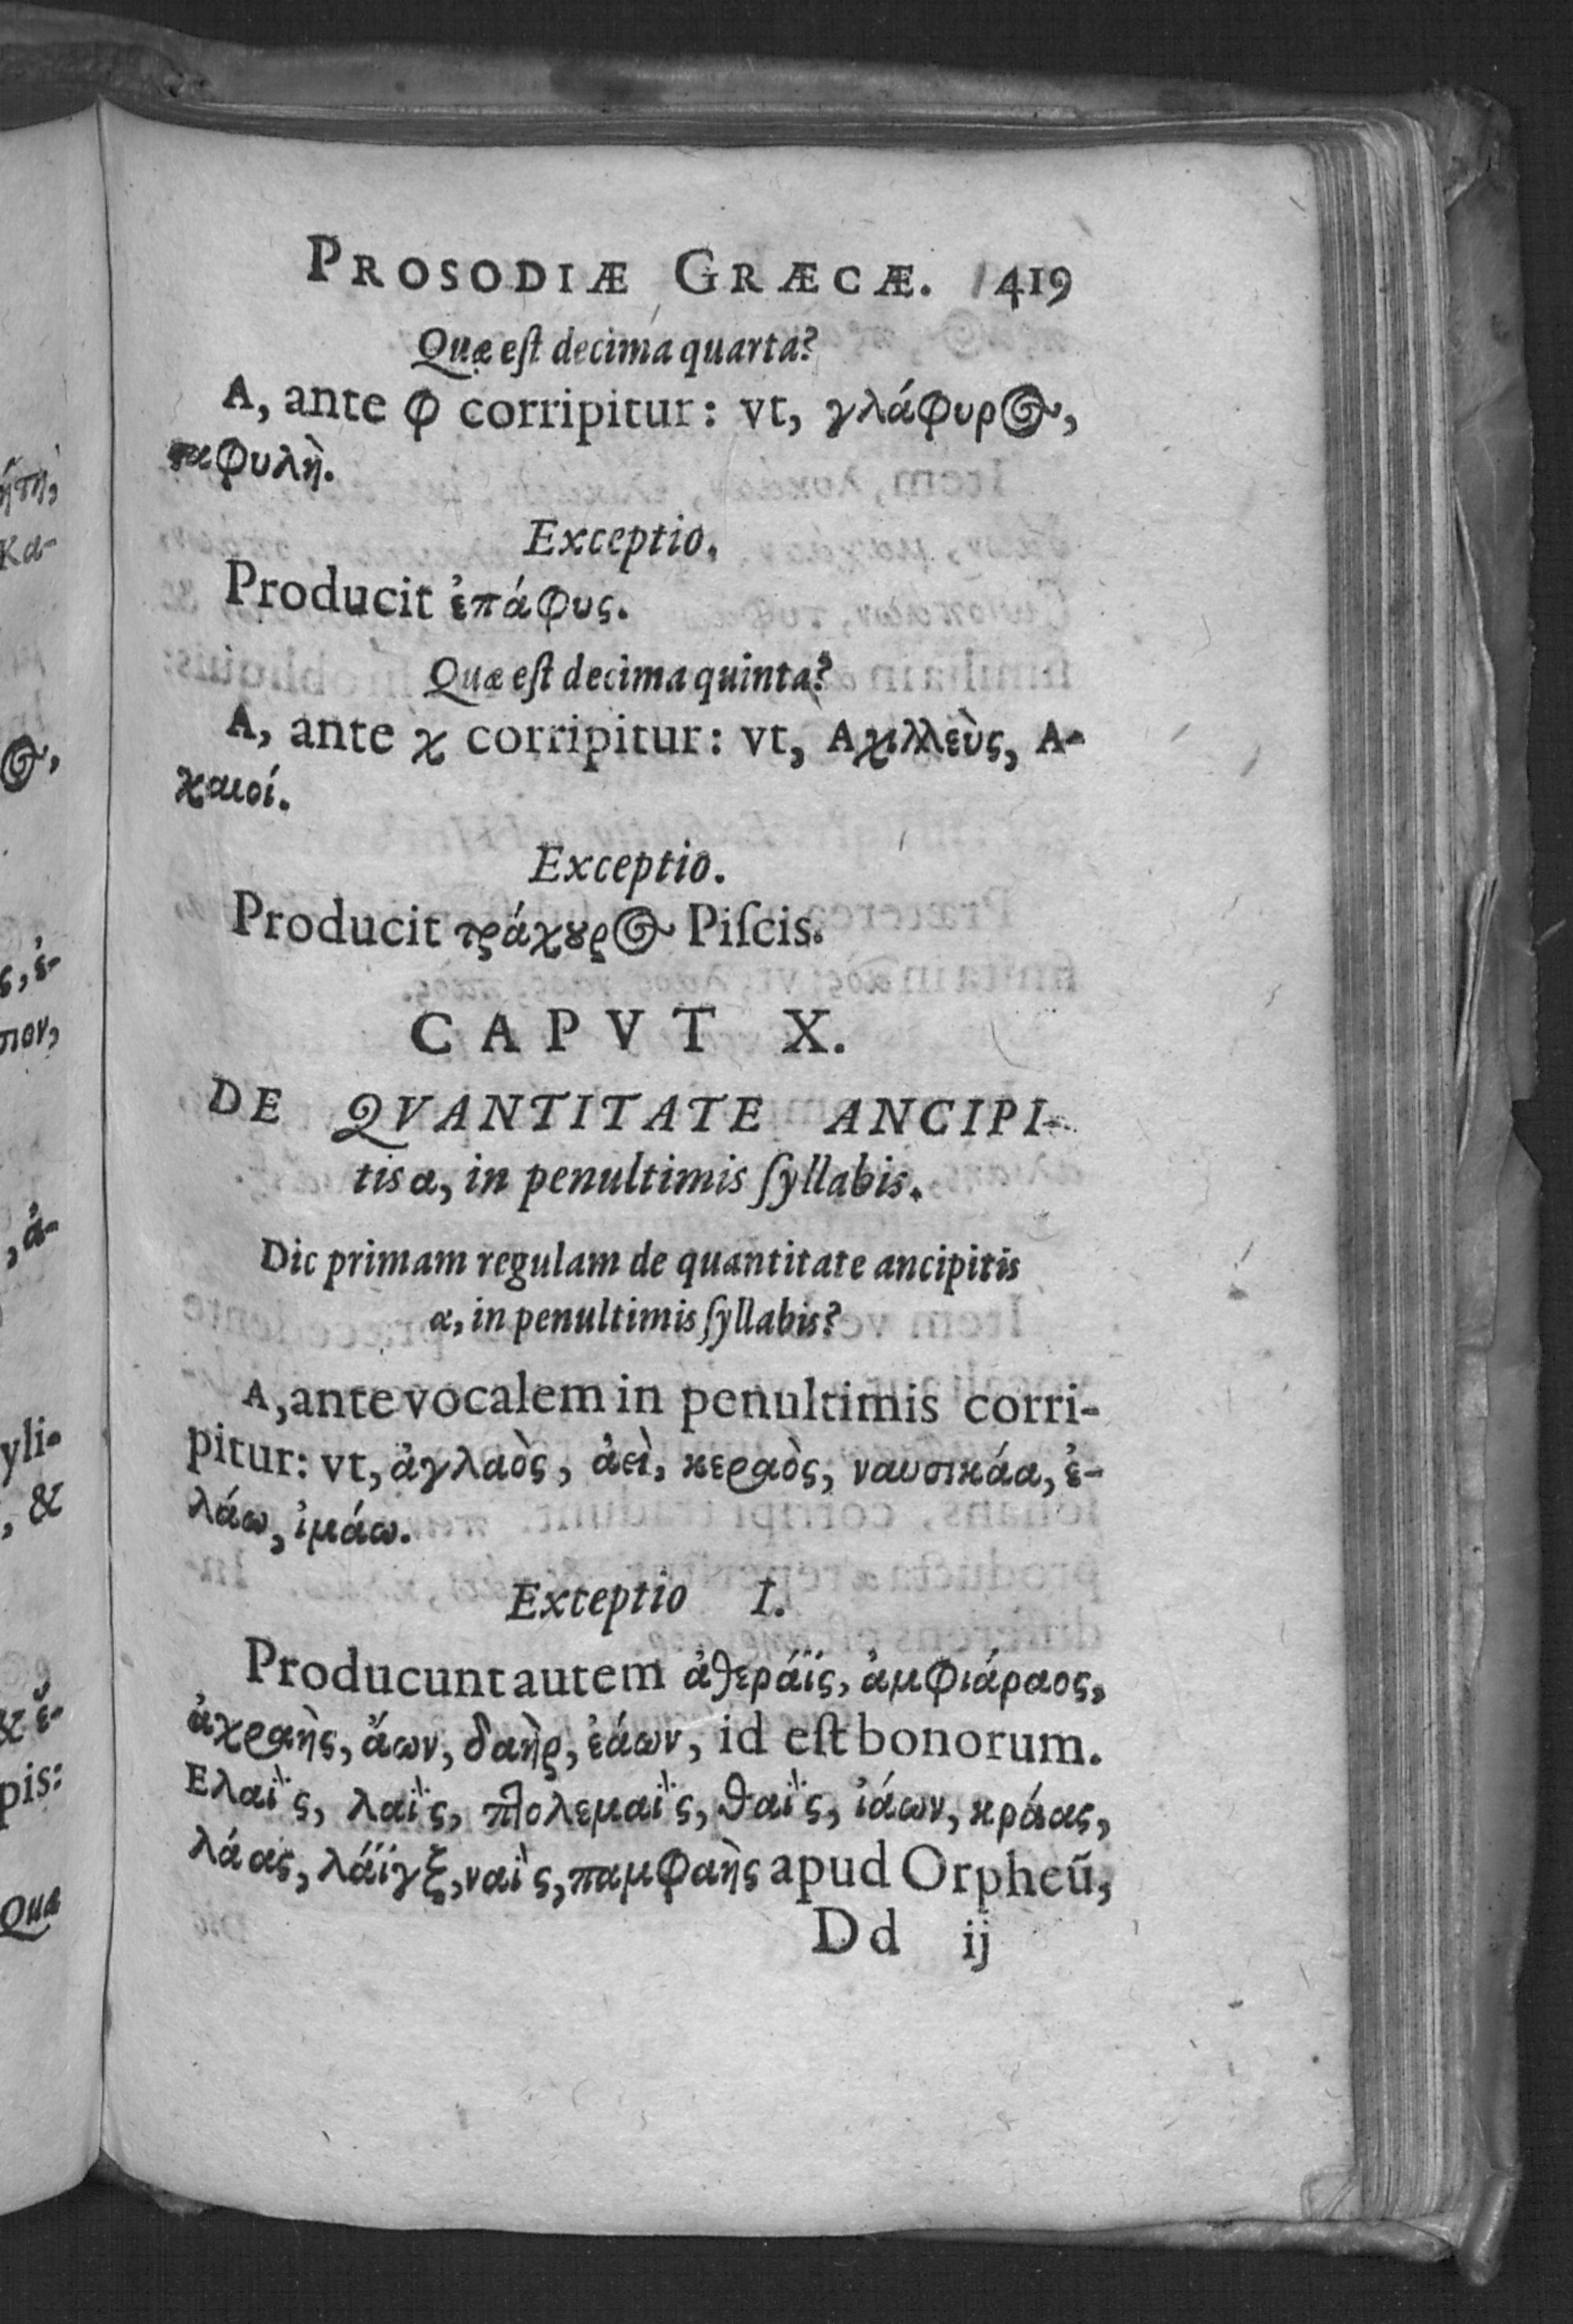 PROSODIÆ GRÆCÆ. 419
Quæ eſt decima quarta?
A, ante φ corripitur: vt, γλάφυρος,
ϛαφυλὴ.
Exceptio.
Producit ἐπάφυς.
Quæ eſt decima quinta?
A, ante χ corripitur: vt, Αχιλλεὺς, Α-
χαιοί.
Exceptio.
Producit τράχουρος Piſcis.
CAPVT X.
DE QVANTITATE ANCIPI-
tis α, in penultimis ſyllabis.
Dic primam regulam de quantitate ancipitis
α, in penultimis ſyllabis?
A, ante vocalem in penultimis corri-
pitur: vt, ἀγλαὸς, ἀεὶ, κεραὸς, ναυσικάα, ἐ-
λάω, ἱμάω.
Exceptio I.
Producunt autem ἀθεράϊς, ἀμφιάραος,
ἀχραὴς, ἄων, δαὴρ, ἐάων, id eſt bonorum.
Ελαῒς, λαῒς, πτολεμαῒς, θαῒς, ἰάων, κράας,
λάας, λάϊγξ, ναῒς, παμφαὴς apud Orpheũ,
Dd ij
ήτη,
κα-
ος,
ς, ἐ-
πον,
, ἀ-
yli-
, &
& ἐ-
pis:
Quæ